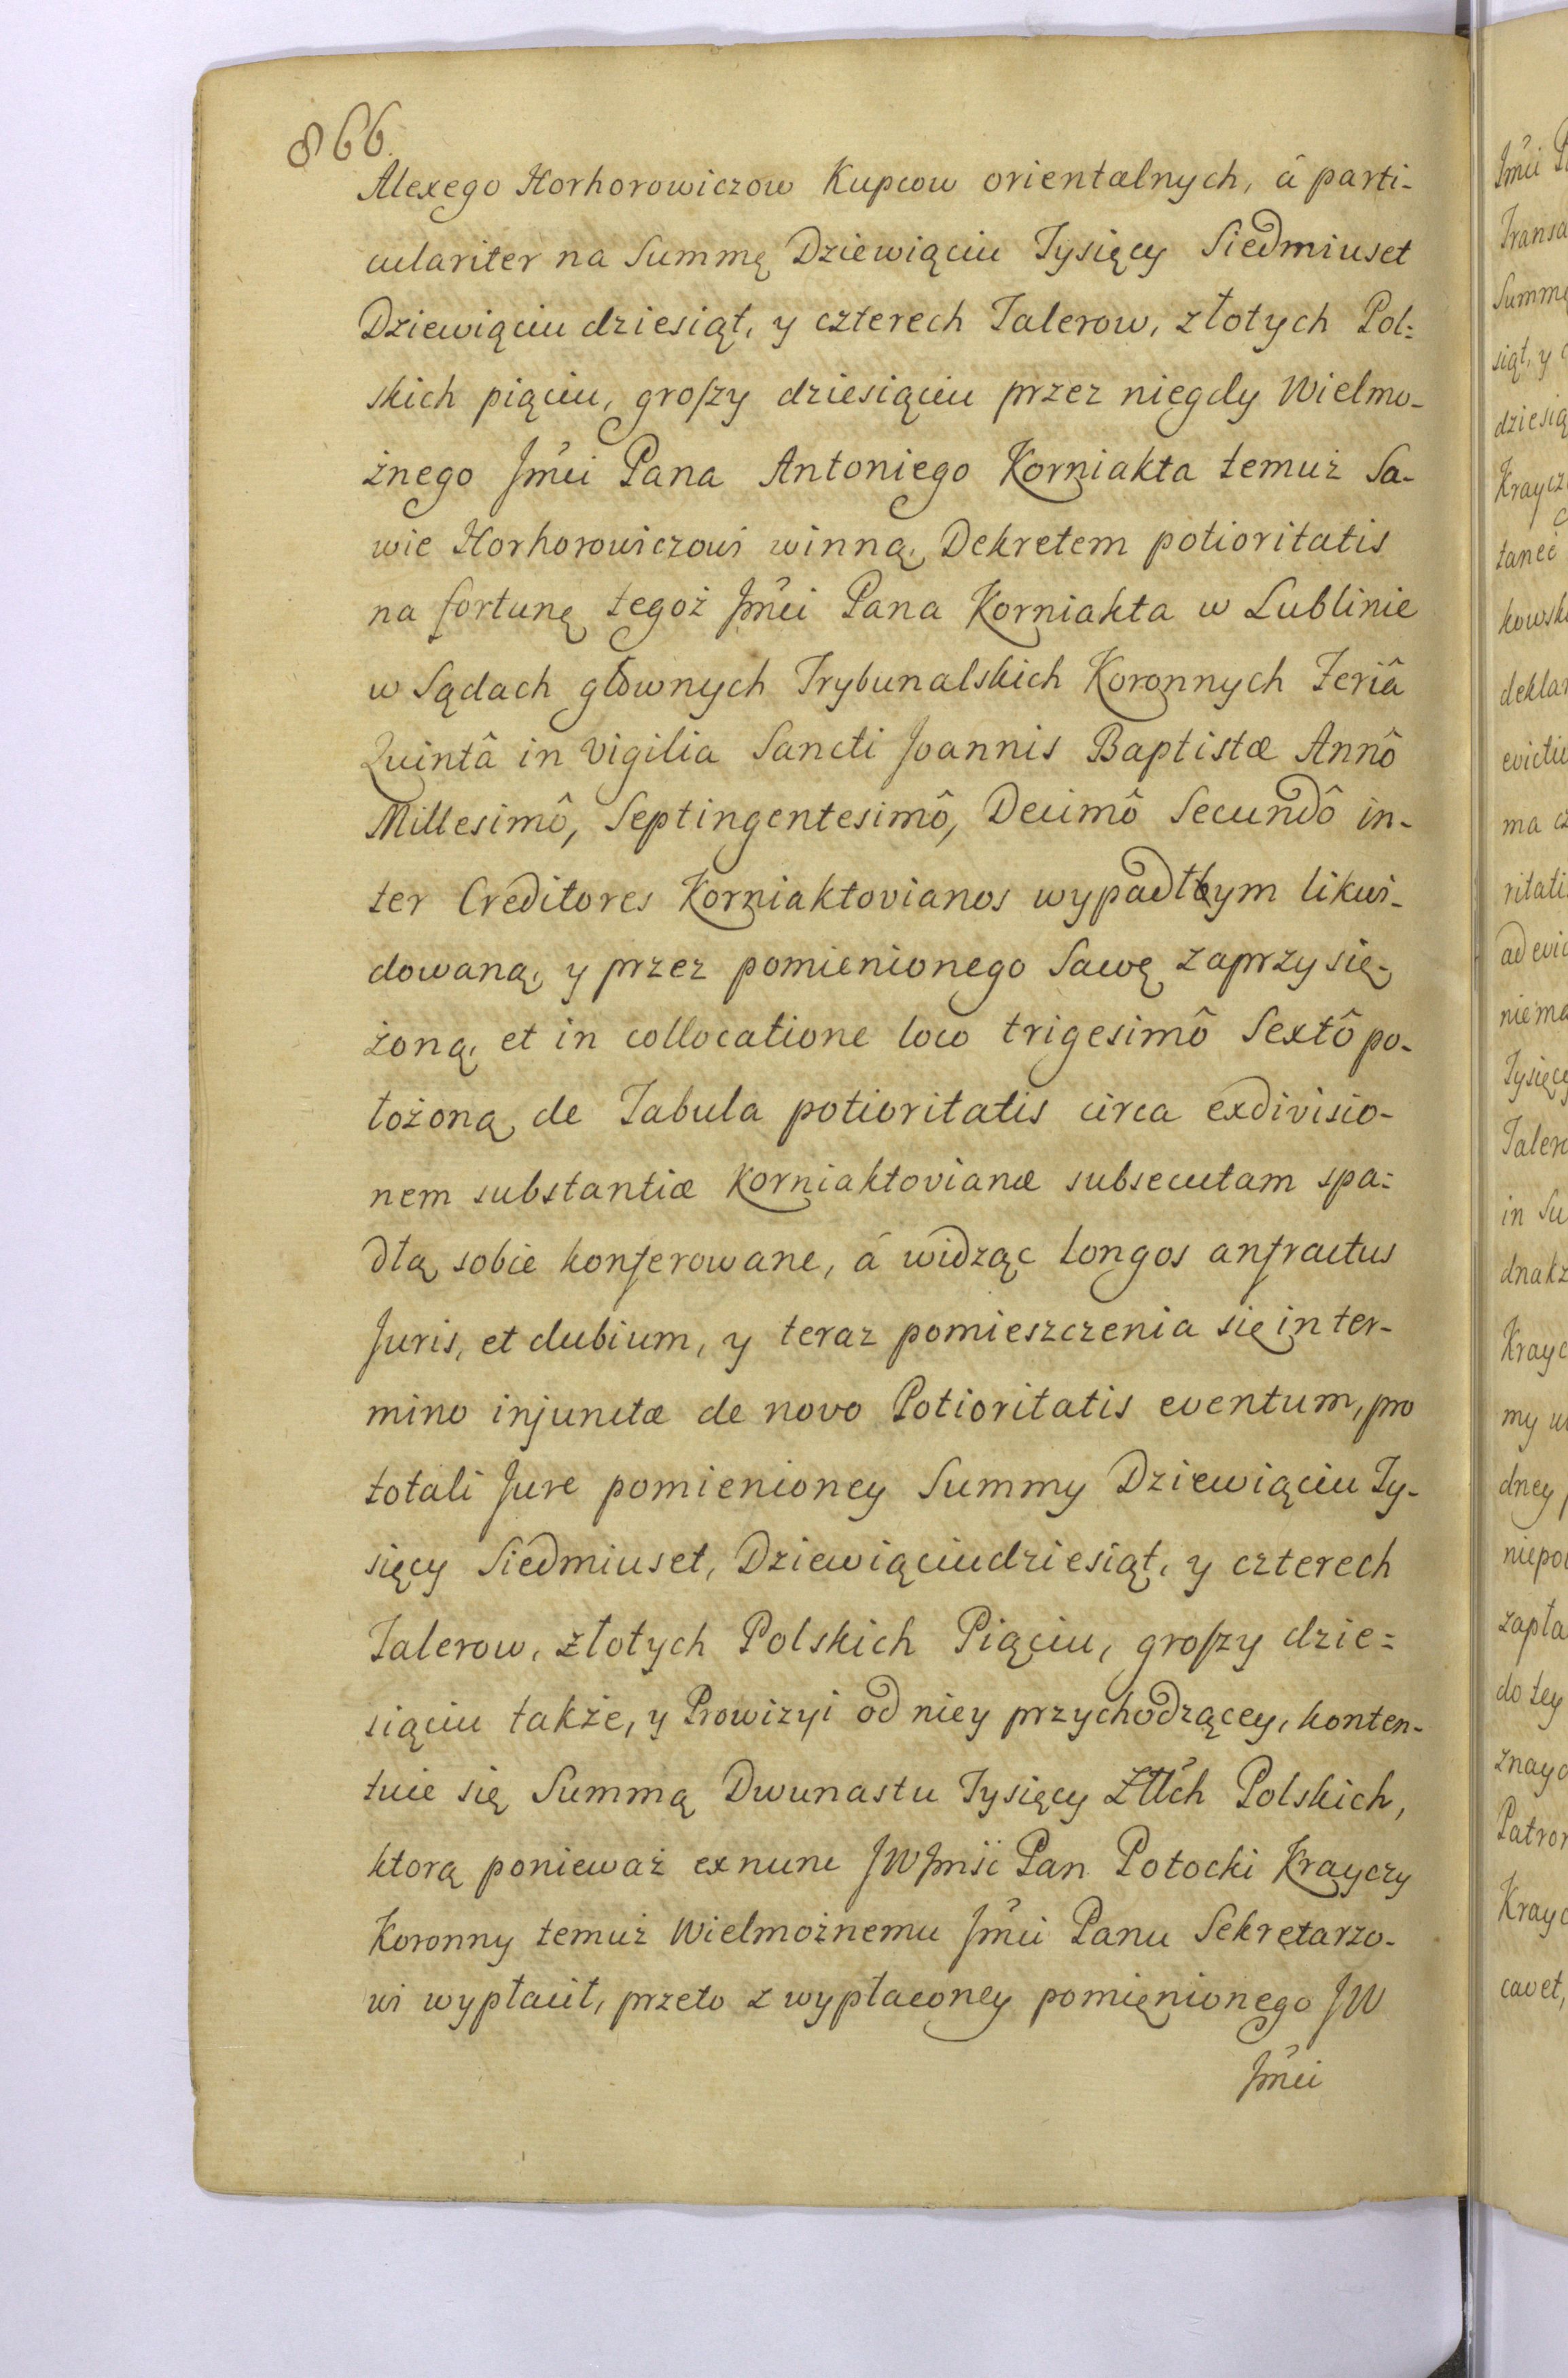 866.
Alexego Horhorowiczow Kupcow orientalnych, â parti-
culariter na Summę Dziewiąciu Tysięcy Siedmiuset
Dziewiąciu dziesiąt, y czterech Talerow, złotych Pol=
skich piąciu, groszy dziesiąciu przez niegdy Wielmo-
żnego Jm̃ci Pana Antoniego Korniakta temuż Sa-
wie Horhorowiczowi winną, Dekretem potioritatis
na fortunę tegoż Jm̃ci Pana Korniakta w Lublinie
w Sądach głownych Trybunalskich Koronnych Feriâ
Quintâ in Vigilia Sancti Joannis Baptistæ Annô
Millesimô, Septingentesimô, Decimô Secundô in-
ter Creditores Korniaktovianos wypadłym likwi-
dowaną, y przez pomienionego Sawę zaprzysię-
żoną, et in collocatione loco trigesimô Sextô po-
łożoną, de Tabula potioritatis circa exdivisio-
nem substantiæ Korniaktovianæ subsecutam spa=
dłą, sobie konferowane, â widząc longos anfractus
Juris, et dubium, y teraz pomieszczenia się in ter-
mino injunctæ de novo Potioritatis eventum, pro
totali Jure pomienioney Summy Dziewiąciu Ty-
sięcy Siedmiuset, Dziewiąciudziesiąt, y czterech
Talerow, złotych Polskich Piąciu, groszy dzie=
siąciu także, y Prowizyi od niey przychodzącey, konten-
tuie się Summą Dwunastu Tysięcy Złłch Polskich,
ktorą ponieważ ex nunc JWJmśc Pan Potocki Krayczy
Koronny temuż Wielmożnemu Jm̃ci Panu Sekretarzo-
wi wypłacił, przeto z wypłaconey pomienionego JW
Jm̃ci
Transa
Summę
siąt, y
dziesią
Kraycz
tanec
kowsk
deklar
evictio
ma cz
ritatis
ad evic
nie ma
Tysięcy
Talero
in Su
dnakż
Krayc
my w
dney
niepo
zapła
do tey
znayd
Patron
Krayc
cavet,